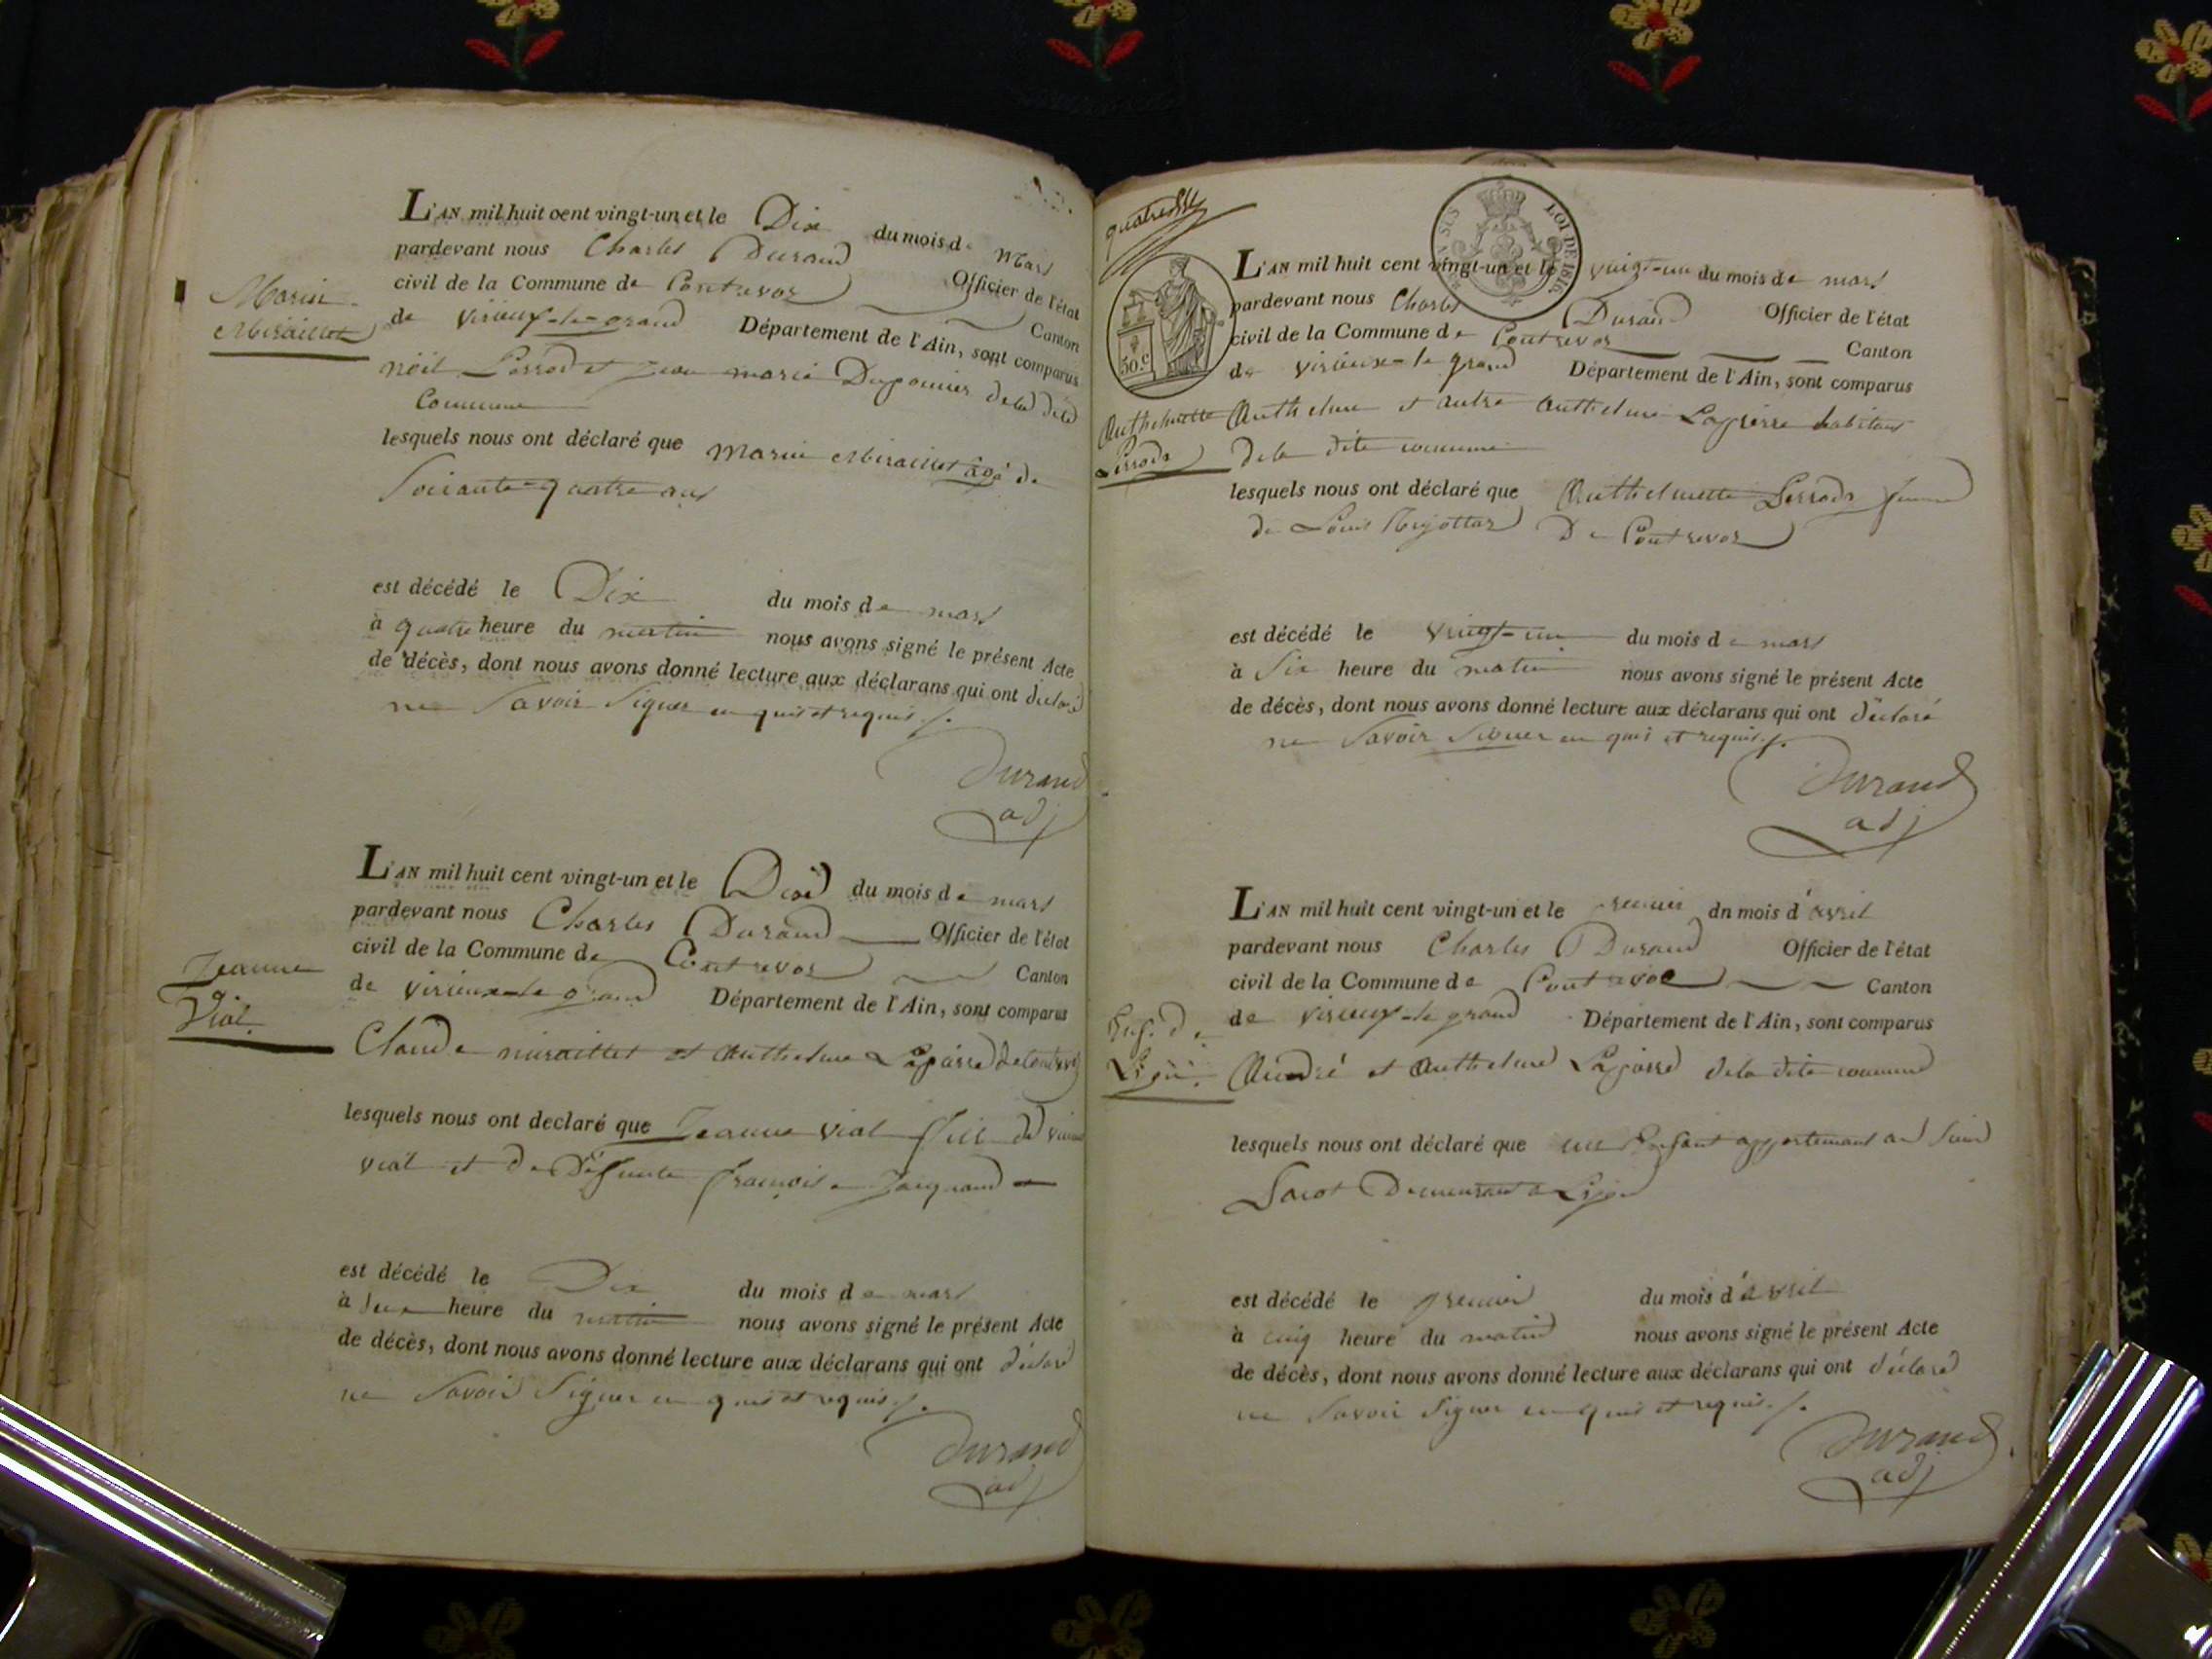 L'AN mil huit cent vingt-un et le Dix du mois de Mars
pardevant nous Charles Durand Officier de l'état
civil de la Commune de Contrevoz Canton
de virieux-le-grand Département de l'Ain, sont comparus
Marie
Miraillet
noël Perrod et jean marie Duponnier de la dite
Commune
lesquels nous ont déclaré que Marie Miraillet âgé de
Soixante-quatre ans
est décédé le Dix du mois de mars
à quatre heure du matin nous avons signé le présent Acte
de décès, dont nous avons donné lecture aux déclarans qui ont déclaré
ne Savoir Signer enquis et requis ./.
Durand
adj
L'AN mil huit cent vingt-un et le Dix du mois de mars
pardevant nous Charles Durand Officier de l'état
civil de la Commune de Contrevoz Canton
de virieux-le-grand Département de l'Ain, sont comparus
Jeanne
Vial
Claude miraillet et Anthelme
lesquels nous ont declaré que Jeanne vial fille de
vial et de Défunte françoise
est décédé le Dix du mois de mars
à heure du matin nous avons signé le présent Acte
de décès, dont nous avons donné lecture aux déclarans qui ont déclaré
ne Savoir Signer enquis et requis ./.
Durand
adj
LOI DE 1816
50.c
L'AN mil huit cent vingt-un et le vingt-un du mois de mars
pardevant nous Charles Durand Officier de l'état
civil de la Commune de Contrevoz Canton
de virieux-le grand Département de l'Ain, sont comparus
Anthelmette
Perrod
Anthelme et autre anthelme habitans
de la dite commune
lesquels nous ont déclaré que Anthelmette Perrod femme
de Louis De Contrevoz
est décédé le vingt-un du mois de mars
à Six heure du matin nous avons signé le présent Acte
de décès, dont nous avons donné lecture aux déclarans qui ont déclaré
ne Savoir Signer enquis et requis ./.
Durand
adj
L'AN mil huit cent vingt-un et le premier dn mois d'avril
pardevant nous Charles Durand Officier de l'état
civil de la Commune de Contrevoz Canton
de virieux-le grand Département de l'Ain, sont comparus
André et Anthelme de la dite commune
lesquels nous ont déclaré que un Enfant appartenant au
demeurant a
est décédé le premier du mois d'avril
à cinq heure du matin nous avons signé le présent Acte
de décès, dont nous avons donné lecture aux déclarans qui ont déclaré
ne Savoir Signer enquis et requis ./.
Durand
adj